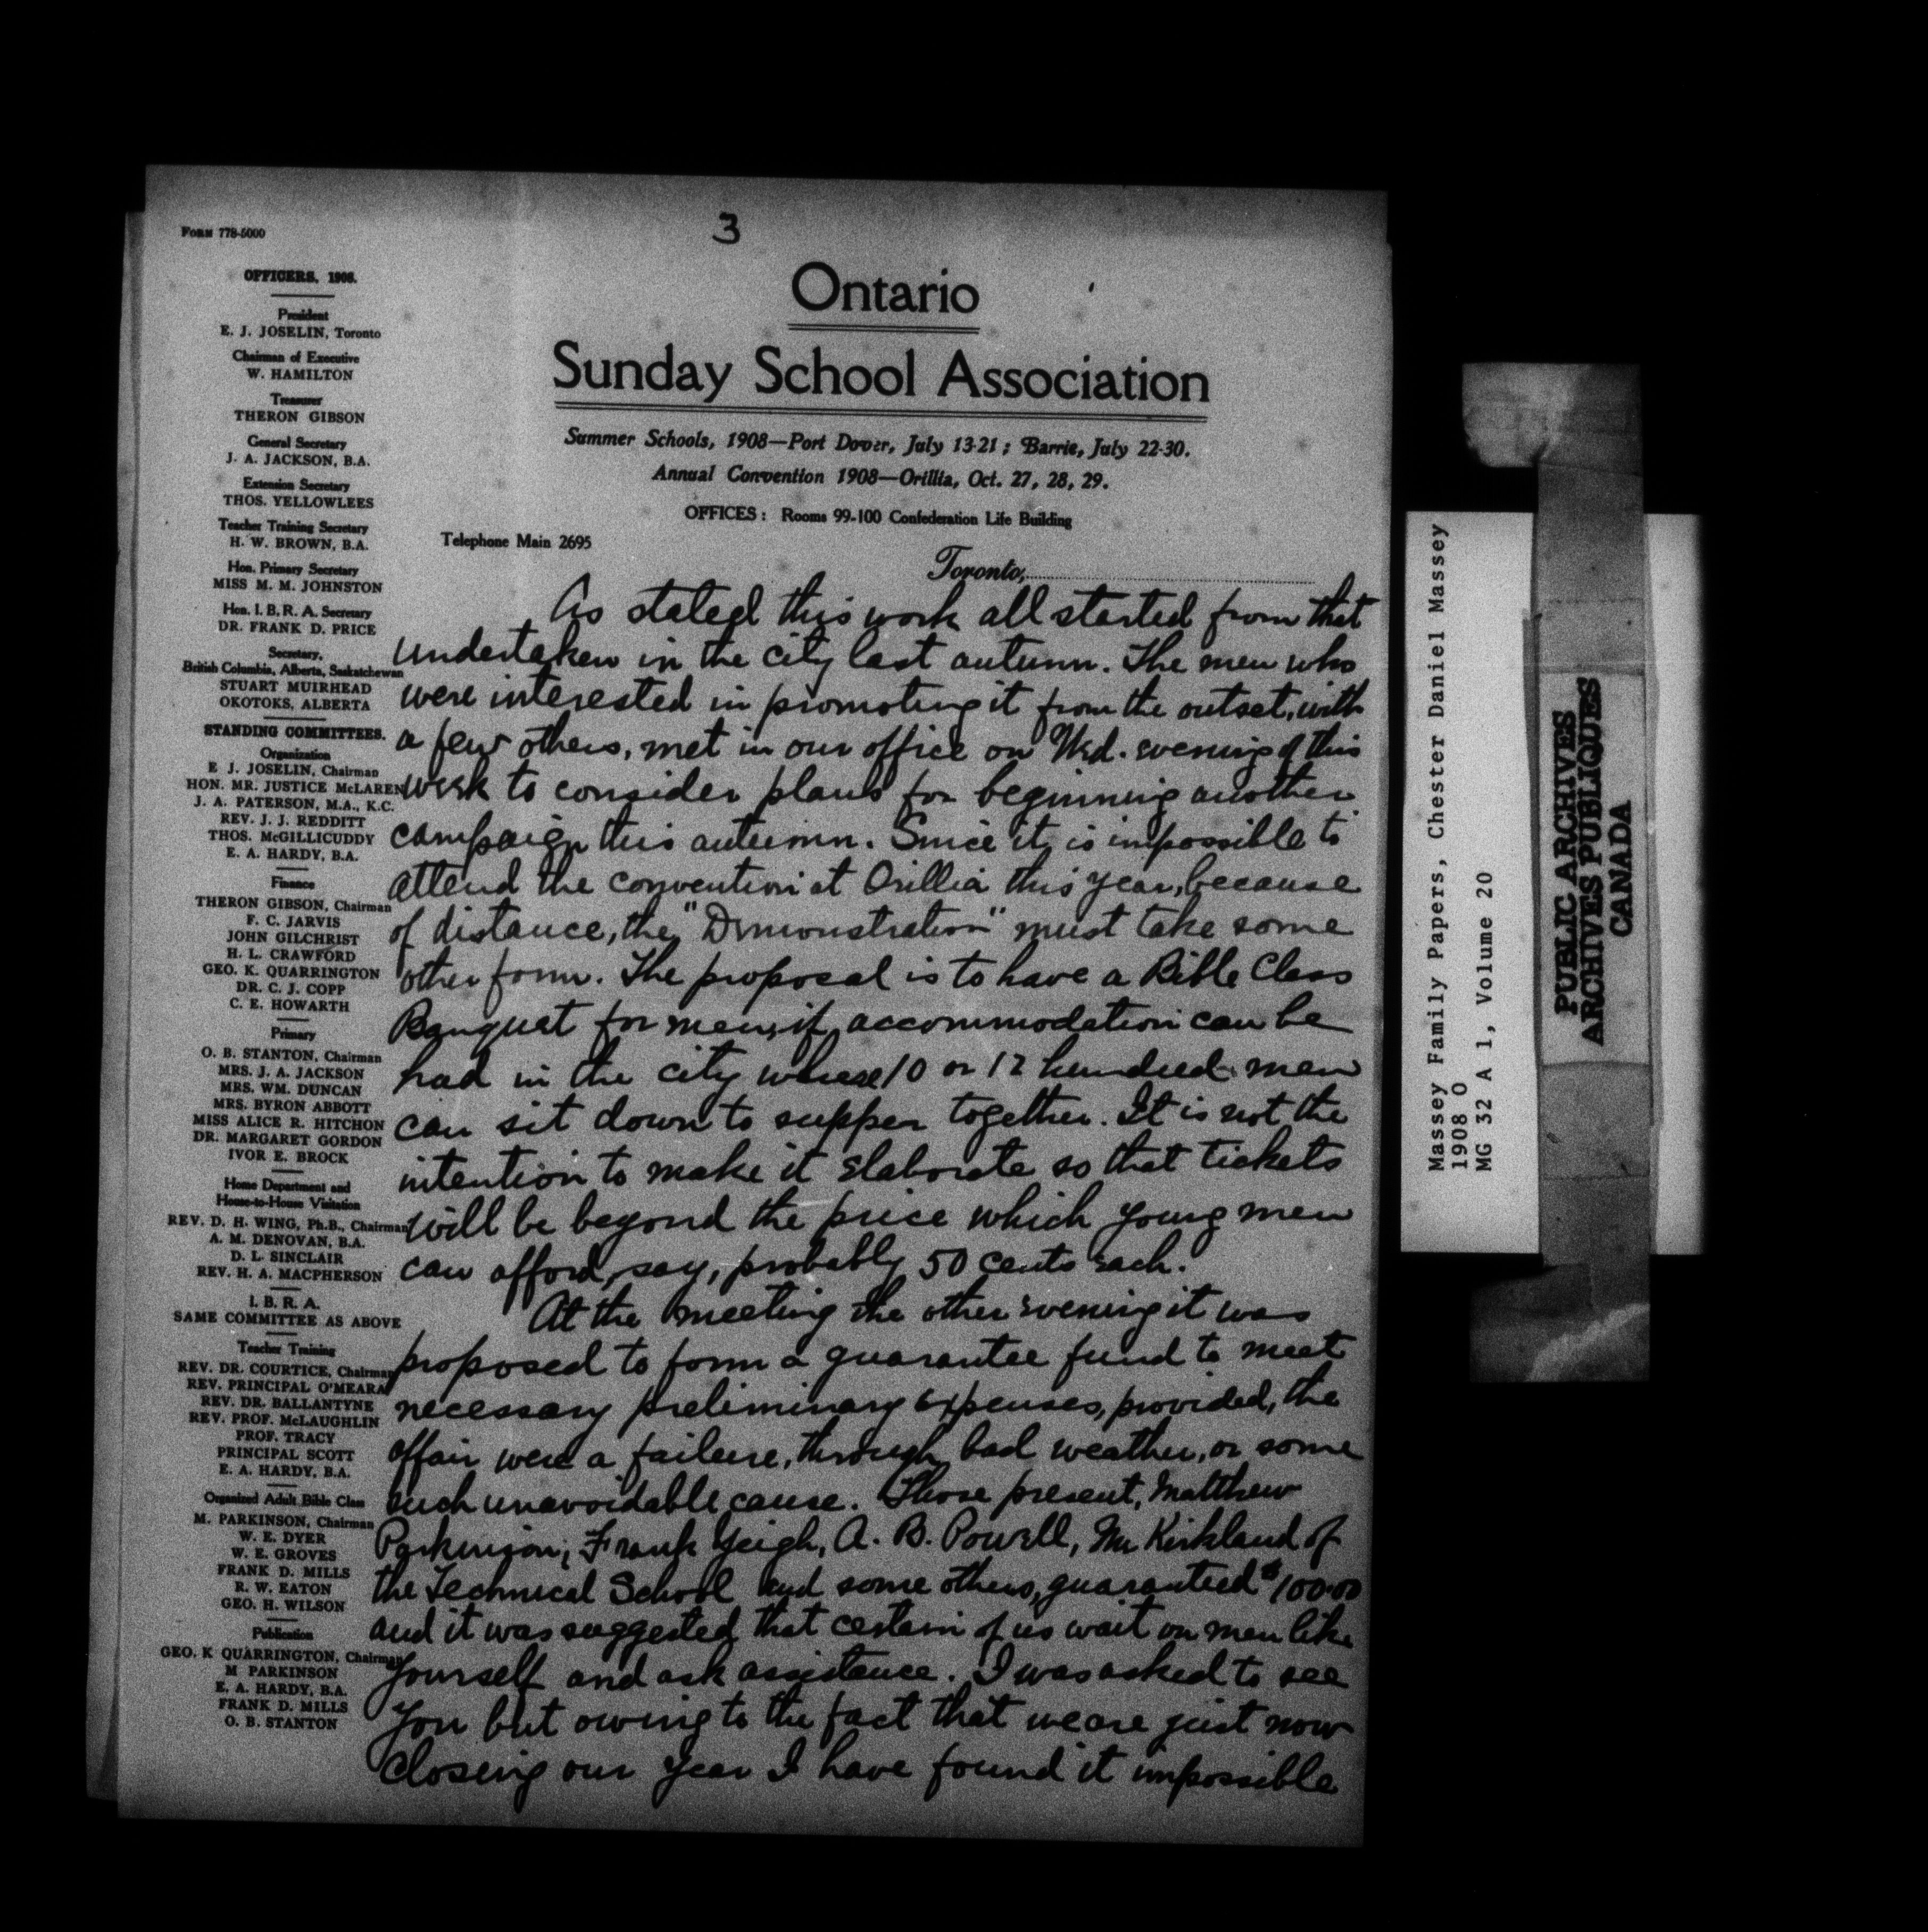 3
FORM 778-5000
OFFICERS, 1908.
President
E. J. JOSELIN, Toronto
Chairman of Executive
W. HAMILTON
Treasurer
THERON GIBSON
General Secretary
J. A. JACKSON, B.A.
Extension Secretary
THOS. YELLOWLEES
Teacher Training Secretary
H. W. BROWN, B.A.
Hon. Primary Secretary
MISS M. M. JOHNSTON
Hon. I. B. R. A. Secretary
DR. FRANK D. PRICE
Secretary,
British Columbia, Alberta, Saskatchewan
STUART MUIRHEAD
OKOTOKS, ALBERTA
STANDING COMMITTEES.
Organization
E J. JOSELIN, Chairman
HON. MR. JUSTICE McLAREN
J. A. PATERSON, M.A., K.C.
REV. J. J. REDDITT
THOS. McGILLICUDDY
E. A. HARDY, B.A.
Finance
THERON GIBSON, Chairman
F. C. JARVIS
JOHN GILCHRIST
H. L. CRAWFORD
GEO. K. QUARRINGTON
DR. C. J. COPP
C. E. HOWARTH
Primary
O. B. STANTON, Chairman
MRS. J. A. JACKSON
MRS. WM. DUNCAN
MRS. BYRON ABBOTT
MISS ALICE R. HITCHON
DR. MARGARET GORDON
IVOR E. BROCK
Home Department and
House-to-House Visitation
REV. D. H. WING, Ph.B., Chairman
A. M. DENOVAN, B.A.
D. L. SINCLAIR
REV. H. A. MACPHERSON
I. B. R. A.
SAME COMMITTEE AS ABOVE
Teacher Training
REV. DR. COURTICE, Chairman
REV. PRINCIPAL O'MEARA
REV. DR. BALLANTYNE
REV. PROF. McLAUGHLIN
PROF. TRACY
PRINCIPAL SCOTT
E. A. HARDY, B.A.
Organized Adult Bible Class
M. PARKINSON, Chairman
W. E. DYER
W. E. GROVES
FRANK D. MILLS
R. W. EATON
GEO. H. WILSON
Publication
GEO. K QUARRINGTON, Chairman
M PARKINSON
E. A. HARDY, B.A.
FRANK D. MILLS
O. B. STANTON
Ontario
Sunday School Association
Summer Schools, 1908—Port Dover, July 13-21; Barrie, July 22-30.
Annual Convention 1908—Orillia, Oct. 27, 28, 29.
OFFICES: Rooms 99-100 Confederation Life Building
Telephone Main 2695
Toronto,
As stated this work all started from that
undertaken in the city last autumn. The men who
were interested in promoting it from the outset, with
a few others, met in our office on Wed. evening of this
week to consider plans for beginning another
campaign this autumn. Since it is impossible to
attend the convention at Orillia this year, because
of distance, the "Demonstration" must take some
other form. The proposal is to have a Bible Class
Banquet for men, if accommodation can be
had in the city where 10 or 12 hundred men
can sit down to supper together. It is not the
intention to make it elaborate so that tickets
will be beyond the price which young men
can afford, say, probably 50 cents each.
At the meeting the other evening it was
proposed to form a guarantee fund to meet
necessary preliminary expenses, provided, the
affair were a failure, through bad weather, or some
such unavoidable cause. Those present, Matthew
Parkinson, Frank Yeigh, A. B. Powell, Mr Kirkland of
the Technical School and some others, guaranteed $100.00
and it was suggested that certain of us wait on men like
yourself and ask assistance. I was asked to see
you but owing to the fact that we are just now
closing our year I have found it impossible
Massey Family Papers, Chester Daniel Massey
1908 O
MG 32 A 1, Volume 20
PUBLIC ARCHIVES
ARCHIVES PUBLIQUES
CANADA